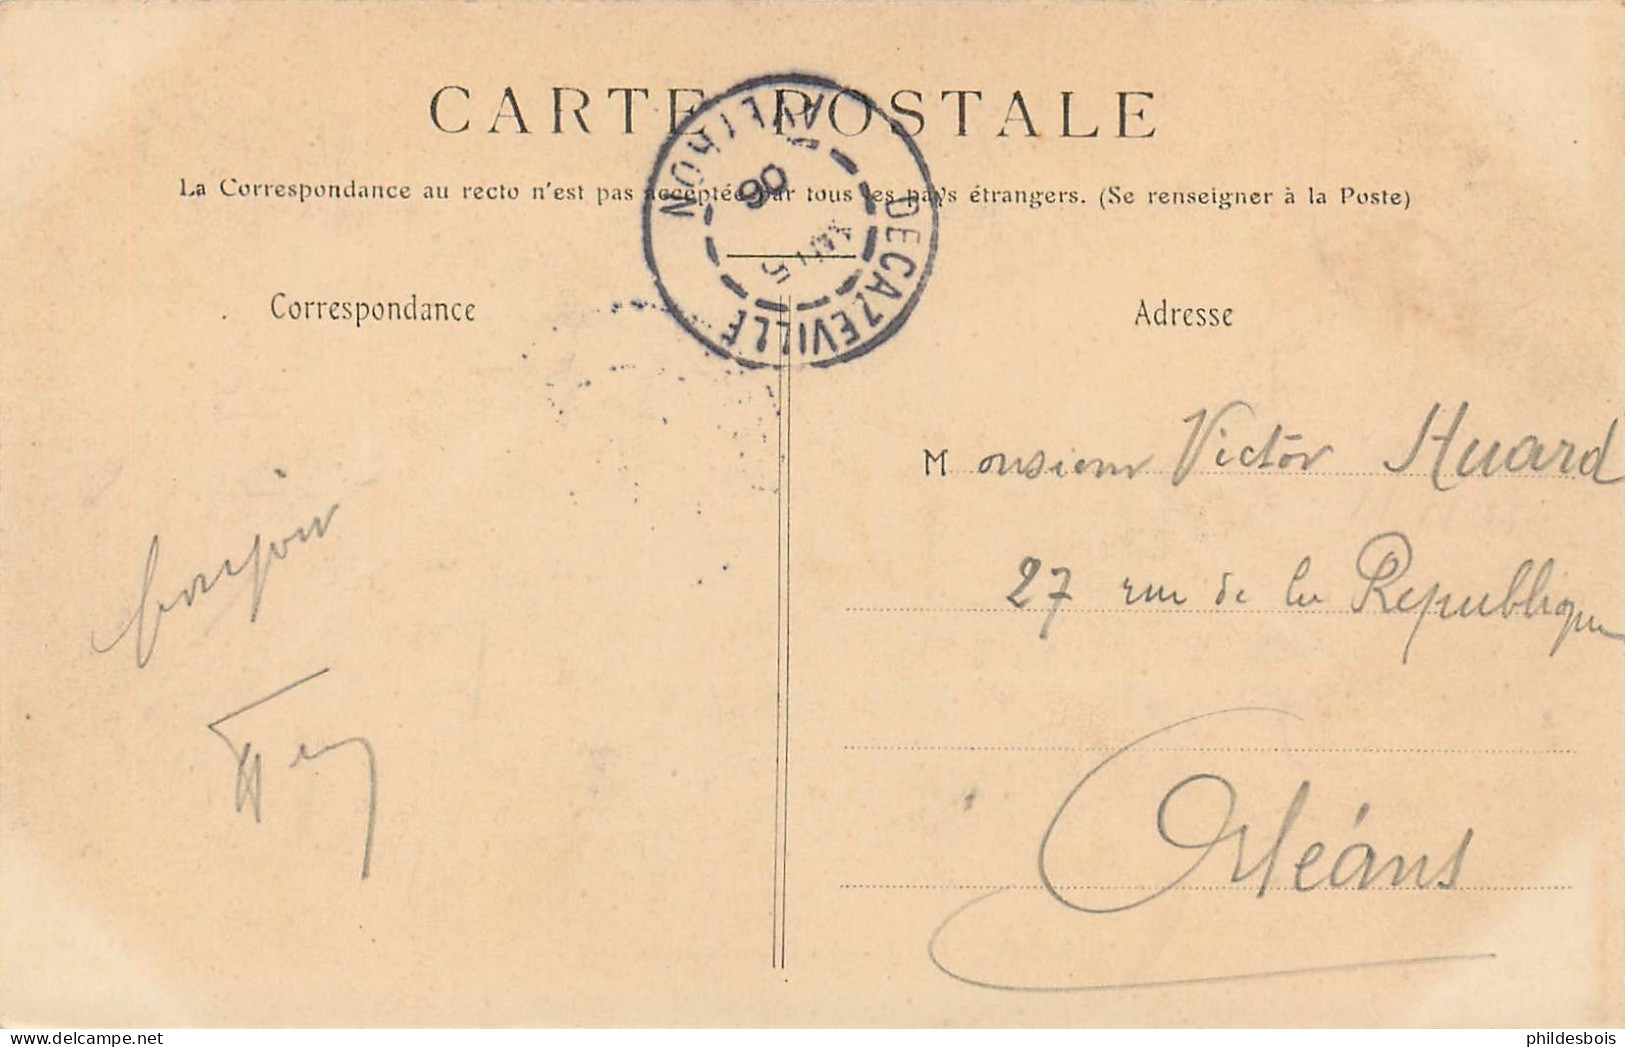 CARTE POSTALE
La Correspondance au recto n'est pas acceptée par tous les pays étrangers. (Se renseigner à la Poste)
DECAZEVILLE
AVEYRON
06
Correspondance
Adresse
bonjour
Monsieur Victor Huard
27 rue de la Republique
Orléans
delcampe.net
phildesbois